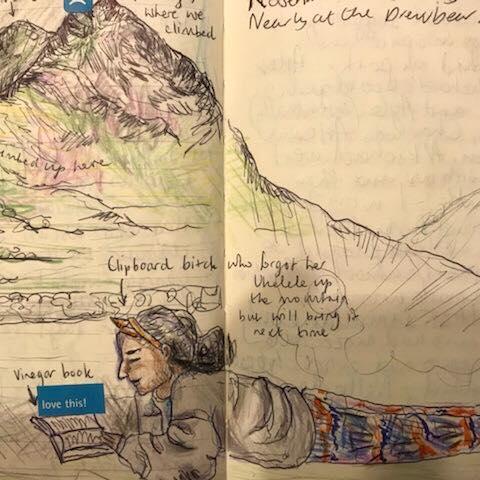 where we
climbed
up here
Clipboard bitch who forgot her
Ukelele up
the mountain
but will bring it
next time
Vinegar book
love this!
Nearly at the Drewbear.